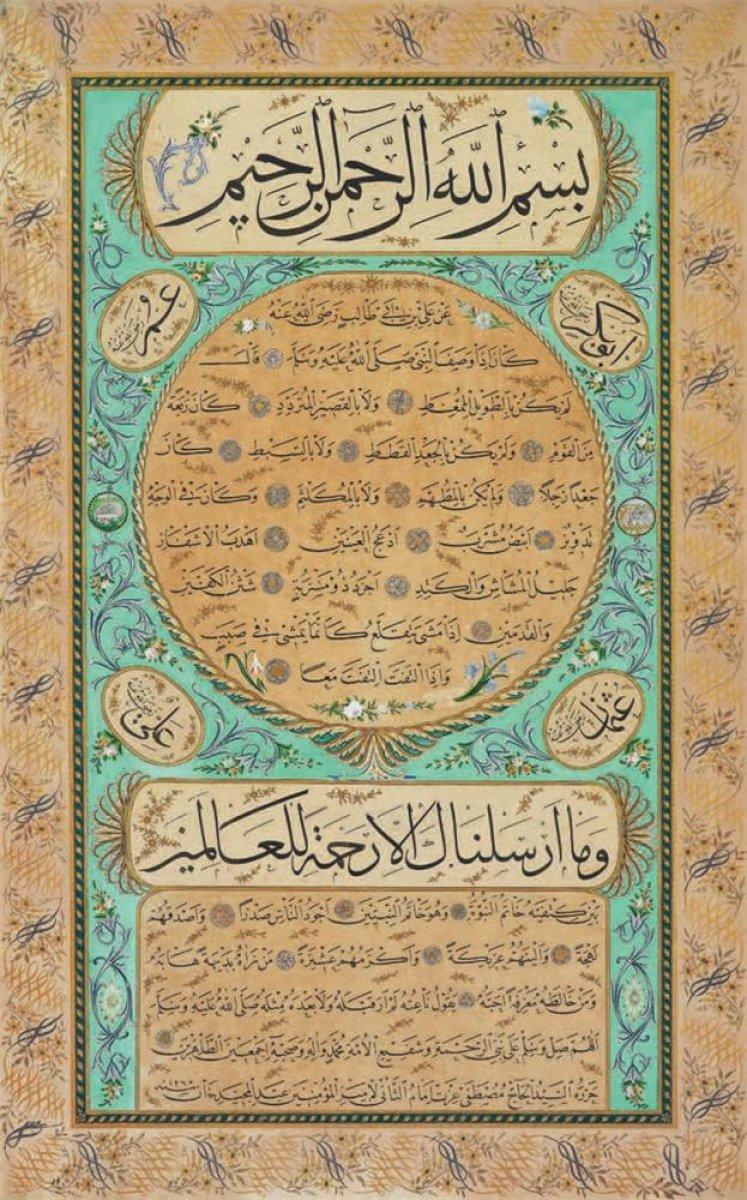 بسم الله الرحمن الرحيم
أبو بكر
عمر
عن علي بن أبي طالب رضى الله عنه
كان اذا وصف النبي صلى الله عليه وسلم قال
لم يكن بالطويل الممغط ولا بالقصير المتردد كان ربعة
من القوم ولم يكن بالجعد القطط ولا بالسبط كان
جعدا رجلا ولم يكن بالمطهم ولا بالمكلثم وكان في الوجه
تدوير ابيض مشرب ادعج العينين اهدب الاشفار
جليل المشاش والكتد اجرد ذو مسربة شثن الكفين
والقدمين اذا مشى يتقلع كانما يمشي في صبب
واذا التفت التفت معا
عثمان
علي
وما ارسلناك الا رحمة للعالمين
بين كتفيه خاتم النبوة وهو خاتم النبيين اجود الناس صدرا واصدقهم
لهجة والينهم عريكة واكرمهم عشيرة من راه بديهة هابه
ومن خالطه معرفة احبه يقول ناعته لم ار قبله ولا بعده مثله صلى الله عليه وسلم
اللهم صل وسلم على نبي الرحمة وشفيع الامة محمد واله وصحبه اجمعين الطاهرين
حرره السيد الحاج مصطفى عزت امام الثاني لامير المؤمنين عبد المجيد خان